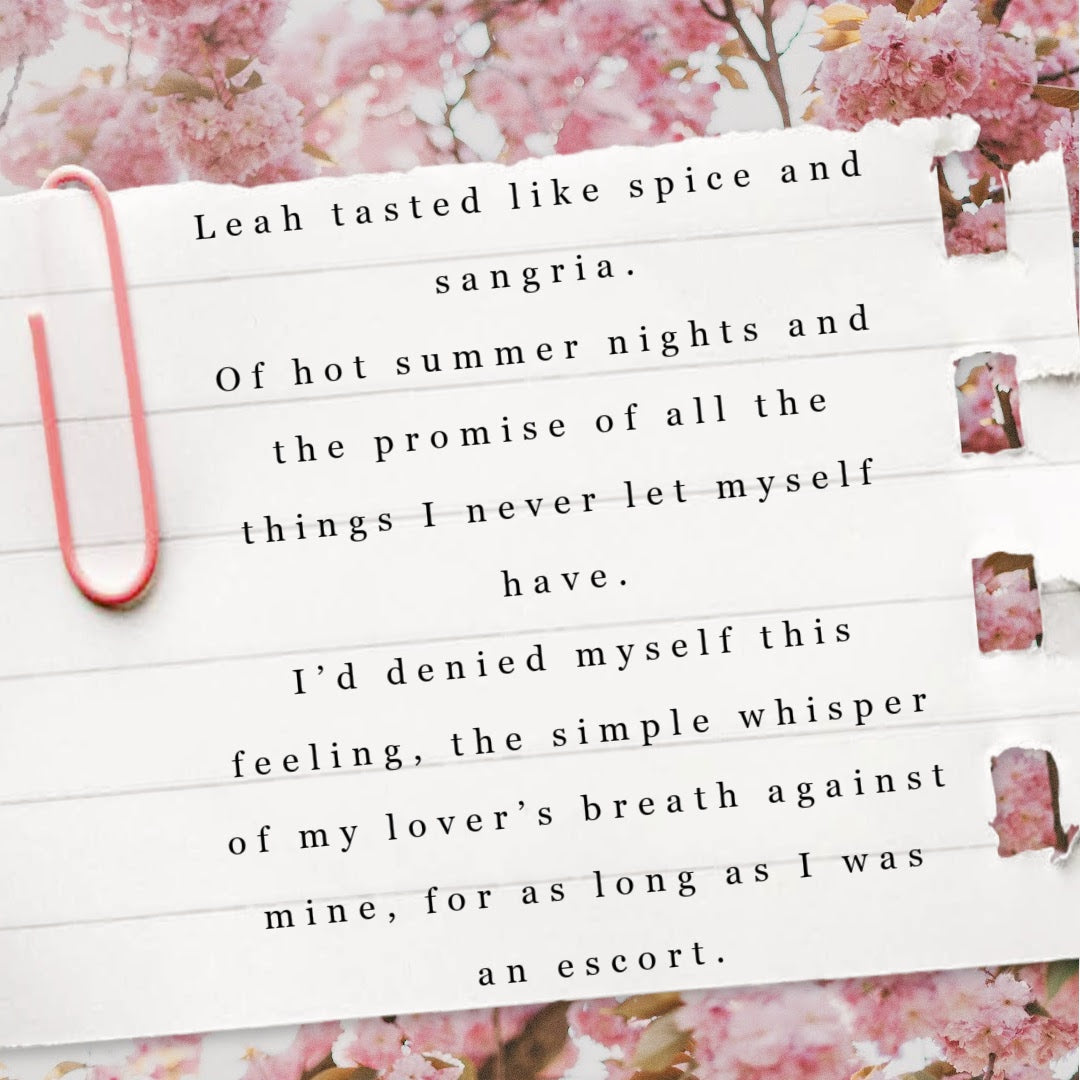 Leah tasted like spice and
sangria.
Of hot summer nights and
the promise of all the
things I never let myself
have.
I’d denied myself this
feeling, the simple whisper
of my lover’s breath against
mine, for as long as I was
an escort.